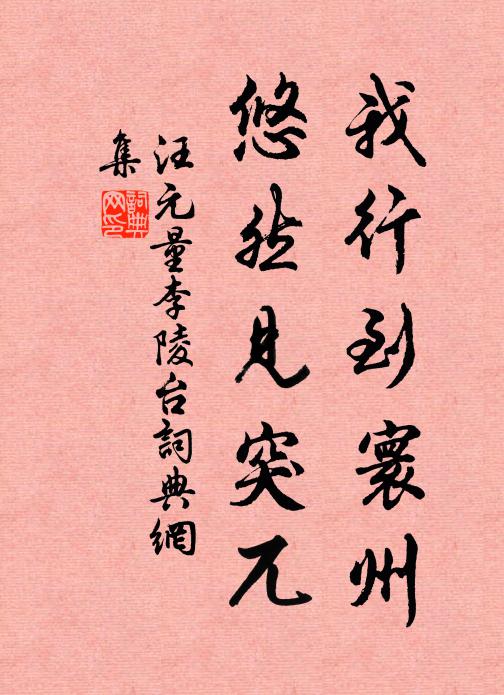 我行到寰州
悠然见突兀
汪元量李陵台詞典網
集
詞典
网印